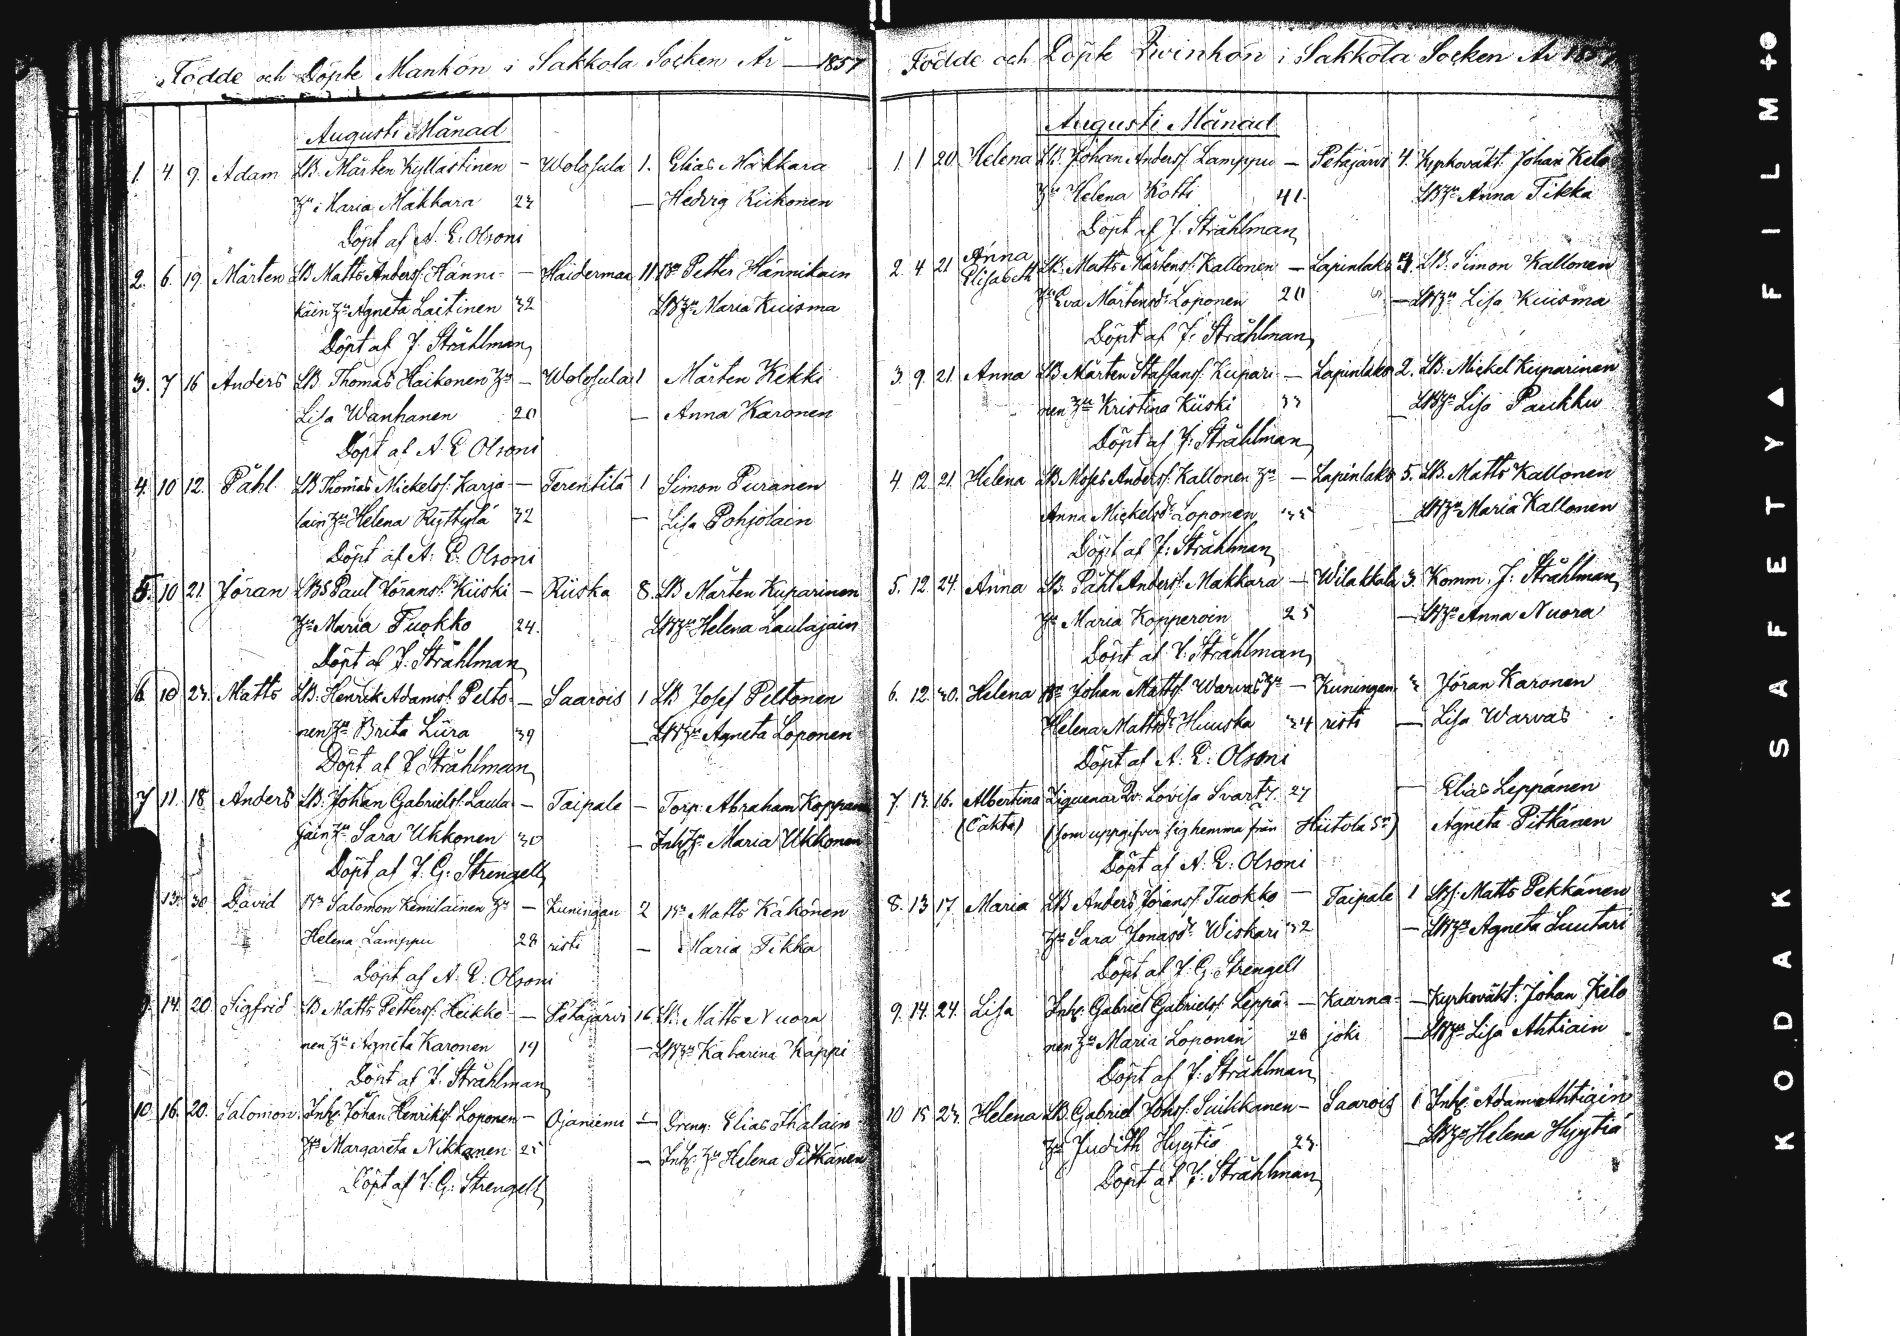 Födde och Döpte Mankön i Sakkola Socken År — 1857
Augusti Månad
1. 4. 9. Adam LB. Mårten Kyllästinen — Wolosula 1. Elias Mäkkara
Hu: Maria Mäkkara 23 — Hedvig Riikonen
Döpt af A. E. Olsoni
2. 6. 19. Mårten LB Matts Anders: Hänni- — Haidermaa 11. Petter Hännikäin
käin Hu Agneta Laitinen 32 LBHu Maria Kuisma
Döpt af J. Stråhlman
3. 7 16 Anders LB Thomas Haikonen Hu — Wolosula 1 Mårten Kekki
Lisa Wanhanen 20 — Anna Karonen
Döpt af A. E Olsoni
4. 10 12. Påhl LB Thomas Mickels: Karja- — Terentilä 1 Simon Puranen
lain Hu Helena Ryttylä 32 — Lisa Pohjolain
Döpt af A. E. Olsoni
5. 10 21. Jöran LBS Paul Jörans: Kiiski — Riiska 8. LB Mårten Kuparinen
Hu Maria Tuokko 24. LBHu Helena Laulajain
Döpt af J. Stråhlman
6. 10 23. Matts LB. Henrik Adams: Pelto- — Saarois 1 LB Josef Peltonen
nen Hu Brita Liira 39 — LBHu Agneta Loponen
Döpt af J Stråhlman
7 11. 18. Anders LB. Johan Gabriels: Laula- — Taipale — Torp: Abraham Koppanen
jain Hu Sara Ukkonen 30 — Inh:Hu Maria Ukkonen
Döpt af J. G. Strengell
13. 30 David Salomon Kemiläinen Hu — Kuningan 2 Matts Käkönen
Helena Lamppu 28 risti — Maria Tikka
Döpt af A. E. Olsoni
9. 14. 20. Sigfrid LB Matts Petters: Heikko- — Petäjärvi 16 LB: Matts Nuora
nen Hu Agneta Karonen 19 — LBHu Katarina Käppi
Döpt af J. Stråhlman
10. 16. 20. Salomon. Inh: Johan Henriks: Loponen — Ojaniemi — Dreng: Elias Ihalain
Hu Margareta Nikkanen 25 — Inh: Hu Helena Pitkänen
Döpt af J. G. Strengell
Födde och Döpte Qwinkön i Sakkola Socken År 1857
Augusti Månad
1. 1 20. Helena LB. Johan Anders: Lamppu — Petäjärvi 4. Kyrkoväkt. Johan Kelo
Hu Helena Kotti 41. LBHu Anna Tikka
Döpt af J. Stråhlman
2. 4 21 Anna Elisabeth LB. Matts Mårtens: Kallonen — Lapinlaks LB. Simon Kallonen
Hu Eva Mårtensd: Loponen 20 — LBHu Lisa Kuisma
Döpt af J. Stråhlman
3. 9. 21. Anna LB Mårten Staffans: Kupari- — Lapinlaks 2. LB. Mickel Kuparinen
nen Hu Kristina Kiiski 33 — LBHu Lisa Paukku
Döpt af J. Stråhlman
4. 12. 21. Helena LB Moses Anders: Kallonen Hu — Lapinlaks 5. LB. Matts Kallonen
Anna Mickelsd: Loponen 35 — LBHu Maria Kallonen
Döpt af J. Stråhlman
5. 12. 24. Anna LB. Påhl Anders: Makkara — Wilakkala 3. Komm. J. Stråhlman
Hu Maria Kopperoin 25 — LBHu Anna Nuora
Döpt af J. Stråhlman
6. 12. 30. Helena Johan Matts: Warvas Hu — Kuningan- 3 Jöran Karonen
Helena Mattsd: Huuska 34 risti — Lisa Warvas
Döpt af A. E. Olsoni
7. 13. 16. Albertina Ziguenar Qv. Lovisa Svart 27 — Elias Leppänen
(Oäkta) (som uppgifver sig hemma från Hiitola Sn) Agneta Pitkänen
Döpt af A. E. Olsoni
8. 13 17. Maria LB Anders Jörans: Tuokko — Taipale 1 LB: Matts Pekkänen
Hu Sara Jonasd: Wiskari 32 — LBHu Agneta Luutari
Döpt af J. G. Strengell
9. 14. 24. Lisa Inh: Gabriel Gabriels: Leppä- — Kaarna- — Kyrkoväkt: Johan Kelo
nen Hu Maria Loponen 28 joki — LBHu Lisa Ahtiain
Döpt af J. Stråhlman
10 15 23. Helena LB. Gabriel Johs: Suikkanen — Saarois 1 Inh: Adam Ahtiain
Hu Judith Hyytiä 23. — LBHu Helena Hyytiä
Döpt af J. Stråhlman
KODAK SAFETY ▲ FILM